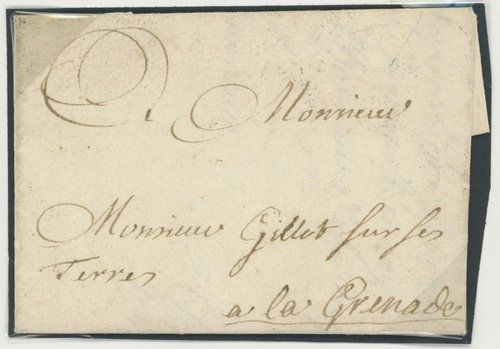 A Monsieur
Monsieur Gillot sur ses
Terres
a la Grenade